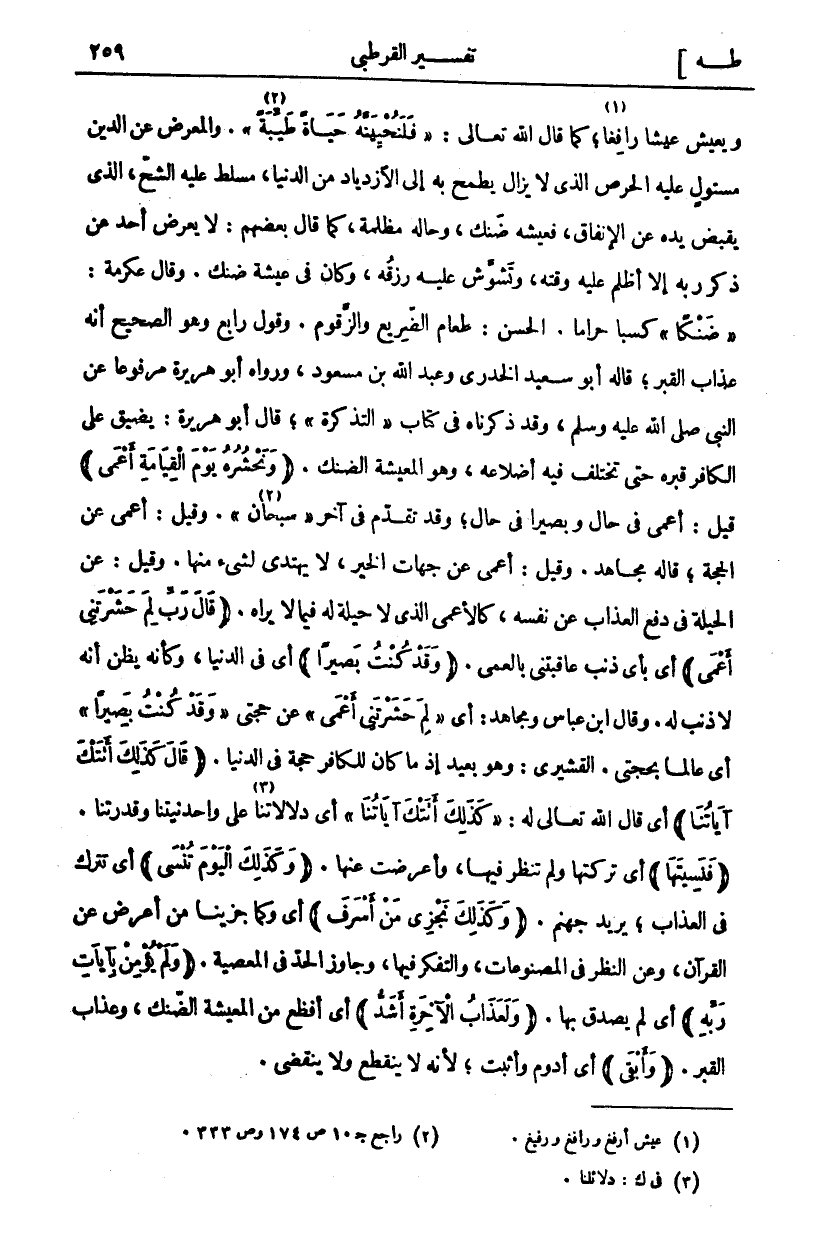 طــه ]
تفســير القرطبي
٢٥٩
ويعيش عيشا رافِغا(١)؛ كما قال الله تعـالى : « فَلَنُحْيِيَنَّهُ حَيَـاةً طَيِّبَةً(٢) » . والمعرض عن الدين
مستولٍ عليه الحرص الذى لا يزال يطمح به إلى الأزدياد من الدنيا، مسلط عليه الشحّ، الذى
يقبض يده عن الإنفاق، فعيشه ضَنك ، وحاله مظلمة ، كما قال بعضهم : لا يعرض أحد عن
ذكر ربه إلا أظلم عليه وقته، وتَشوّش عليــه رزقُه ، وكان فى عيشة ضنك . وقال عكرمة :
« ضَنْكًا » كسبا حراما . الحسن : طعام الضّريع والزَّقوم . وقول رابع وهو الصحيح أنه
عذاب القبر ؛ قاله أبو سـعيد الخدرى وعبد الله بن مسعود ، ورواه أبو هريرة مرفوعا عن
النبى صلى الله عليه وسلم ، وقد ذكرناه فى كتاب « التذكرة » ؛ قال أبو هريرة : يضيق على
الكافر قبره حتى تختلف فيه أضلاعه ، وهو المعيشة الضنك . ﴿ وَنَحْشُرُهُ يَوْمَ الْقِيَامَةِ أَعْمَى ﴾
قيل : أعمى فى حال وبصيرا فى حال؛ وقد تقـدّم فى آخر « سبحان(٢) » . وقيل : أعمى عن
الحجة ؛ قاله مجـاهد . وقيل : أعمى عن جهات الخير ، لا يهتدى لشىء منها . وقيل : عن
الحيلة فى دفع العذاب عن نفسه ، كالأعمى الذى لا حيلة له فيما لا يراه . ﴿ قَالَ رَبِّ لِمَ حَشَرْتَنِى
أَعْمَى ﴾ أى بأى ذنب عاقبتنى بالعمى . ﴿ وَقَدْ كُنْتُ بَصِيرًا ﴾ أى فى الدنيا ، وكأنه يظن أنه
لا ذنب له . وقال ابن عباس ومجاهد: أى « لِمَ حَشَرْتَنِى أَعْمَى » عن حجتى « وَقَدْ كُنْتُ بَصِيرًا »
أى عالمـا بحجتى . القشيرى : وهو بعيد إذ ما كان للكافر حجة فى الدنيا . ﴿ قَالَ كَذَلِكَ أَتَتْكَ
آيَاتُنَا ﴾ أى قال الله تعـالى له : « كَذَلِكَ أَتَتْكَ آيَاتُنَا » أى دلالاتنا(٣) على واحدنيتنا وقدرتنا .
﴿ فَنَسِيتَهَا ﴾ أى تركتها ولم تنظر فيهـا، وأعرضت عنها . ﴿ وَكَذَلِكَ الْيَوْمَ تُنْسَى ﴾ أى تترك
فى العذاب ؛ يريد جهنم . ﴿ وَكَذَلِكَ نَجْزِى مَنْ أَسْرَفَ ﴾ أى وكما جزينـا من أعرض عن
القرآن، وعن النظر فى المصنوعات، والتفكر فيها، وجاوز الحدّ فى المعصية . ﴿ وَلَمْ يُؤْمِنْ بِآيَاتِ
رَبِّهِ ﴾ أى لم يصدق بها . ﴿ وَلَعَذَابُ الْآخِرَةِ أَشَدُّ ﴾ أى أفظع من المعيشة الضّنك ، وعذاب
القبر . ﴿ وَأَبْقَى ﴾ أى أدوم وأثبت ؛ لأنه لا ينقطع ولا ينقضى .
(١) عيش أرفغ ورافغ ورفيغ .
(٢) راجع جـ ١٠ ص ١٧٤ وص ٣٣٣ .
(٣) فى ك : دلائلنا .